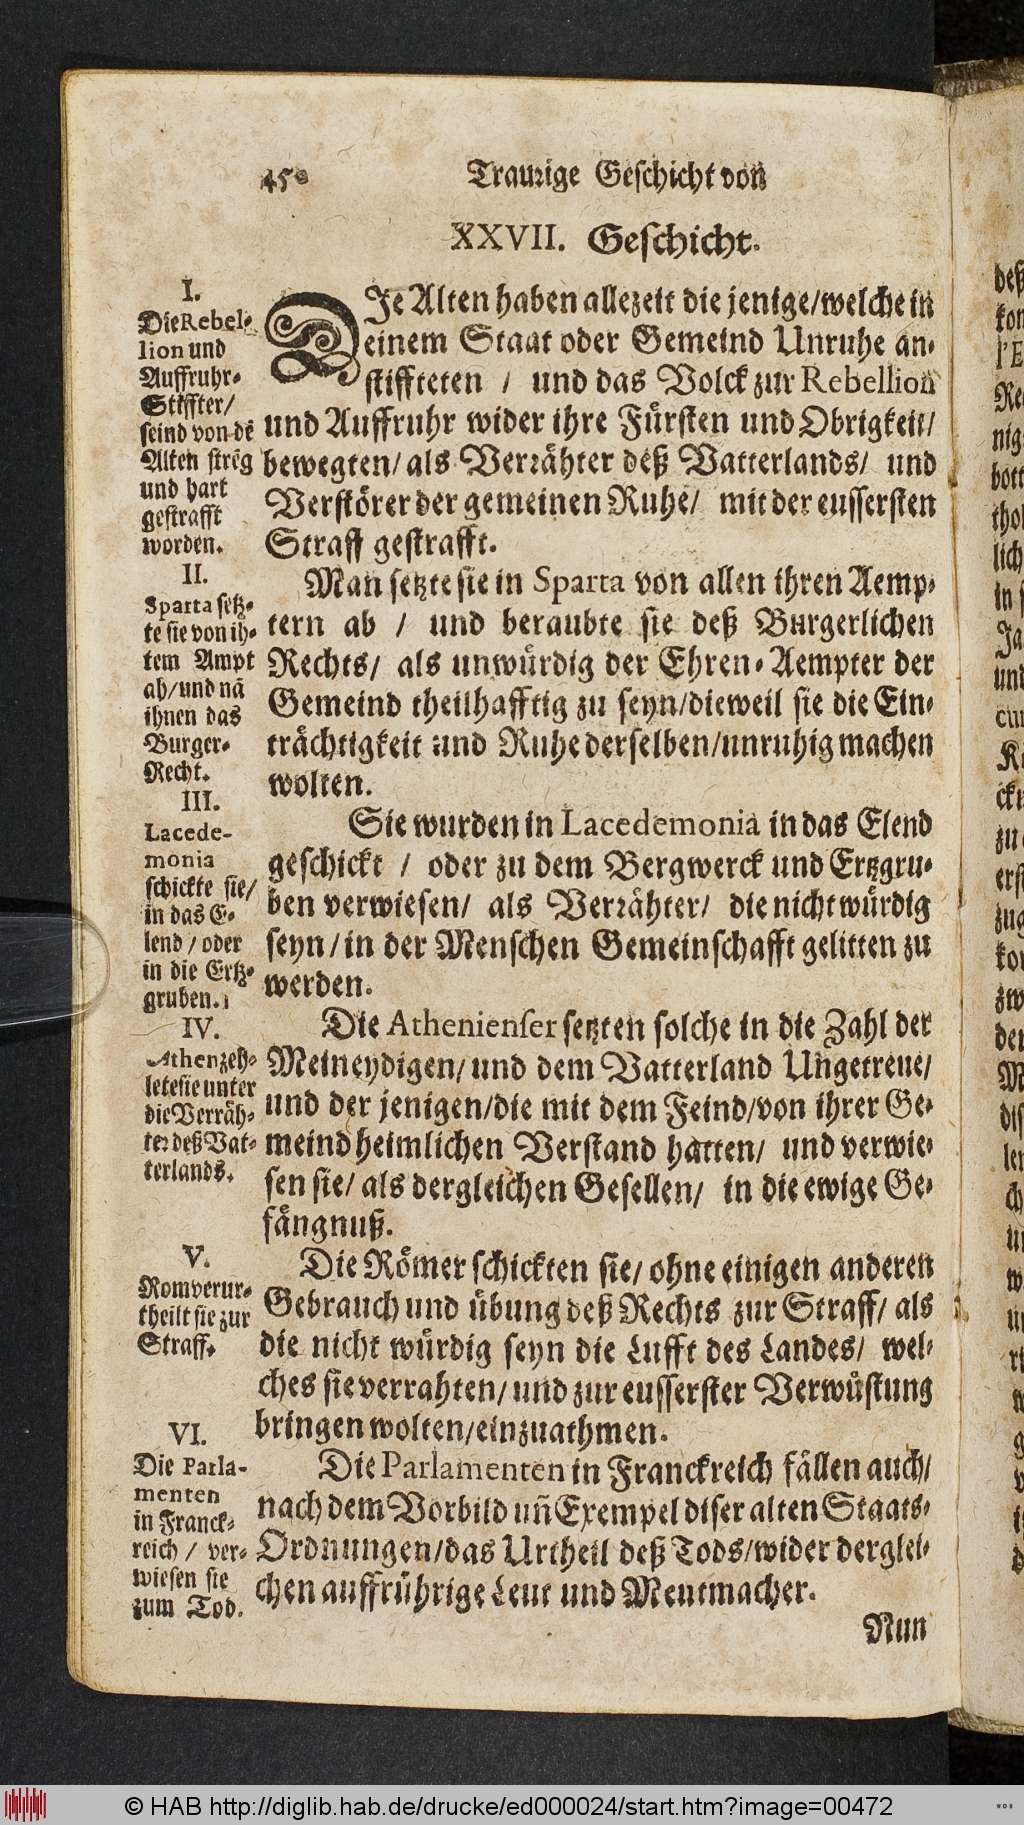 450 Traurige Geschicht von
XXVII. Geschicht.
I.
Die Rebel-
lion und
Auffruhr-
Stiffter/
seind von dē
Alten strēg
und hart
gestrafft
worden.
II.
Sparta setz-
te sie von ih-
rem Ampt
ab/ und nā
ihnen das
Burger-
Recht.
III.
Lacede-
monia
schickte sie/
in das E-
lend / oder
in die Ertz-
gruben.
IV.
Athen zeh-
lete sie unter
die Verräh-
ter deß Vat-
terlands.
V.
Rom verur-
theilt sie zur
Straff.
VI.
Die Parla-
menten
in Franck-
reich / ver-
wiesen sie
zum Tod.
DIe Alten haben allezeit die jenige/ welche in
einem Staat oder Gemeind Unruhe an-
stiffteten / und das Volck zur Rebellion
und Auffruhr wider ihre Fürsten und Obrigkeit/
bewegten/ als Verrähter deß Vatterlands/ und
Verstörer der gemeinen Ruhe/ mit der eussersten
Straff gestrafft.
Man setzte sie in Sparta von allen ihren Aemp-
tern ab / und beraubte sie deß Burgerlichen
Rechts/ als unwürdig der Ehren-Aempter der
Gemeind theilhafftig zu seyn/ dieweil sie die Ein-
trächtigkeit und Ruhe derselben/ unruhig machen
wolten.
Sie wurden in Lacedemonia in das Elend
geschickt / oder zu dem Bergwerck und Ertzgru-
ben verwiesen/ als Verrähter/ die nicht würdig
seyn/ in der Menschen Gemeinschafft gelitten zu
werden.
Die Athenienser setzten solche in die Zahl der
Meineydigen/ und dem Vatterland Ungetreue/
und der jenigen/ die mit dem Feind/ von ihrer Ge-
meind heimlichen Verstand hatten/ und verwie-
sen sie/ als dergleichen Gesellen/ in die ewige Ge-
fängnuß.
Die Römer schickten sie/ ohne einigen anderen
Gebrauch und übung deß Rechts zur Straff/ als
die nicht würdig seyn die Lufft des Landes/ wel-
ches sie verrahten/ und zur eusserster Verwüstung
bringen wolten/ einzuathmen.
Die Parlamenten in Franckreich fällen auch/
nach dem Vorbild uñ Exempel diser alten Staats-
Ordnungen/ das Urtheil deß Tods/ wider derglei-
chen auffrührige Leut und Meutmacher.
Nun
© HAB http://diglib.hab.de/drucke/ed000024/start.htm?image=00472